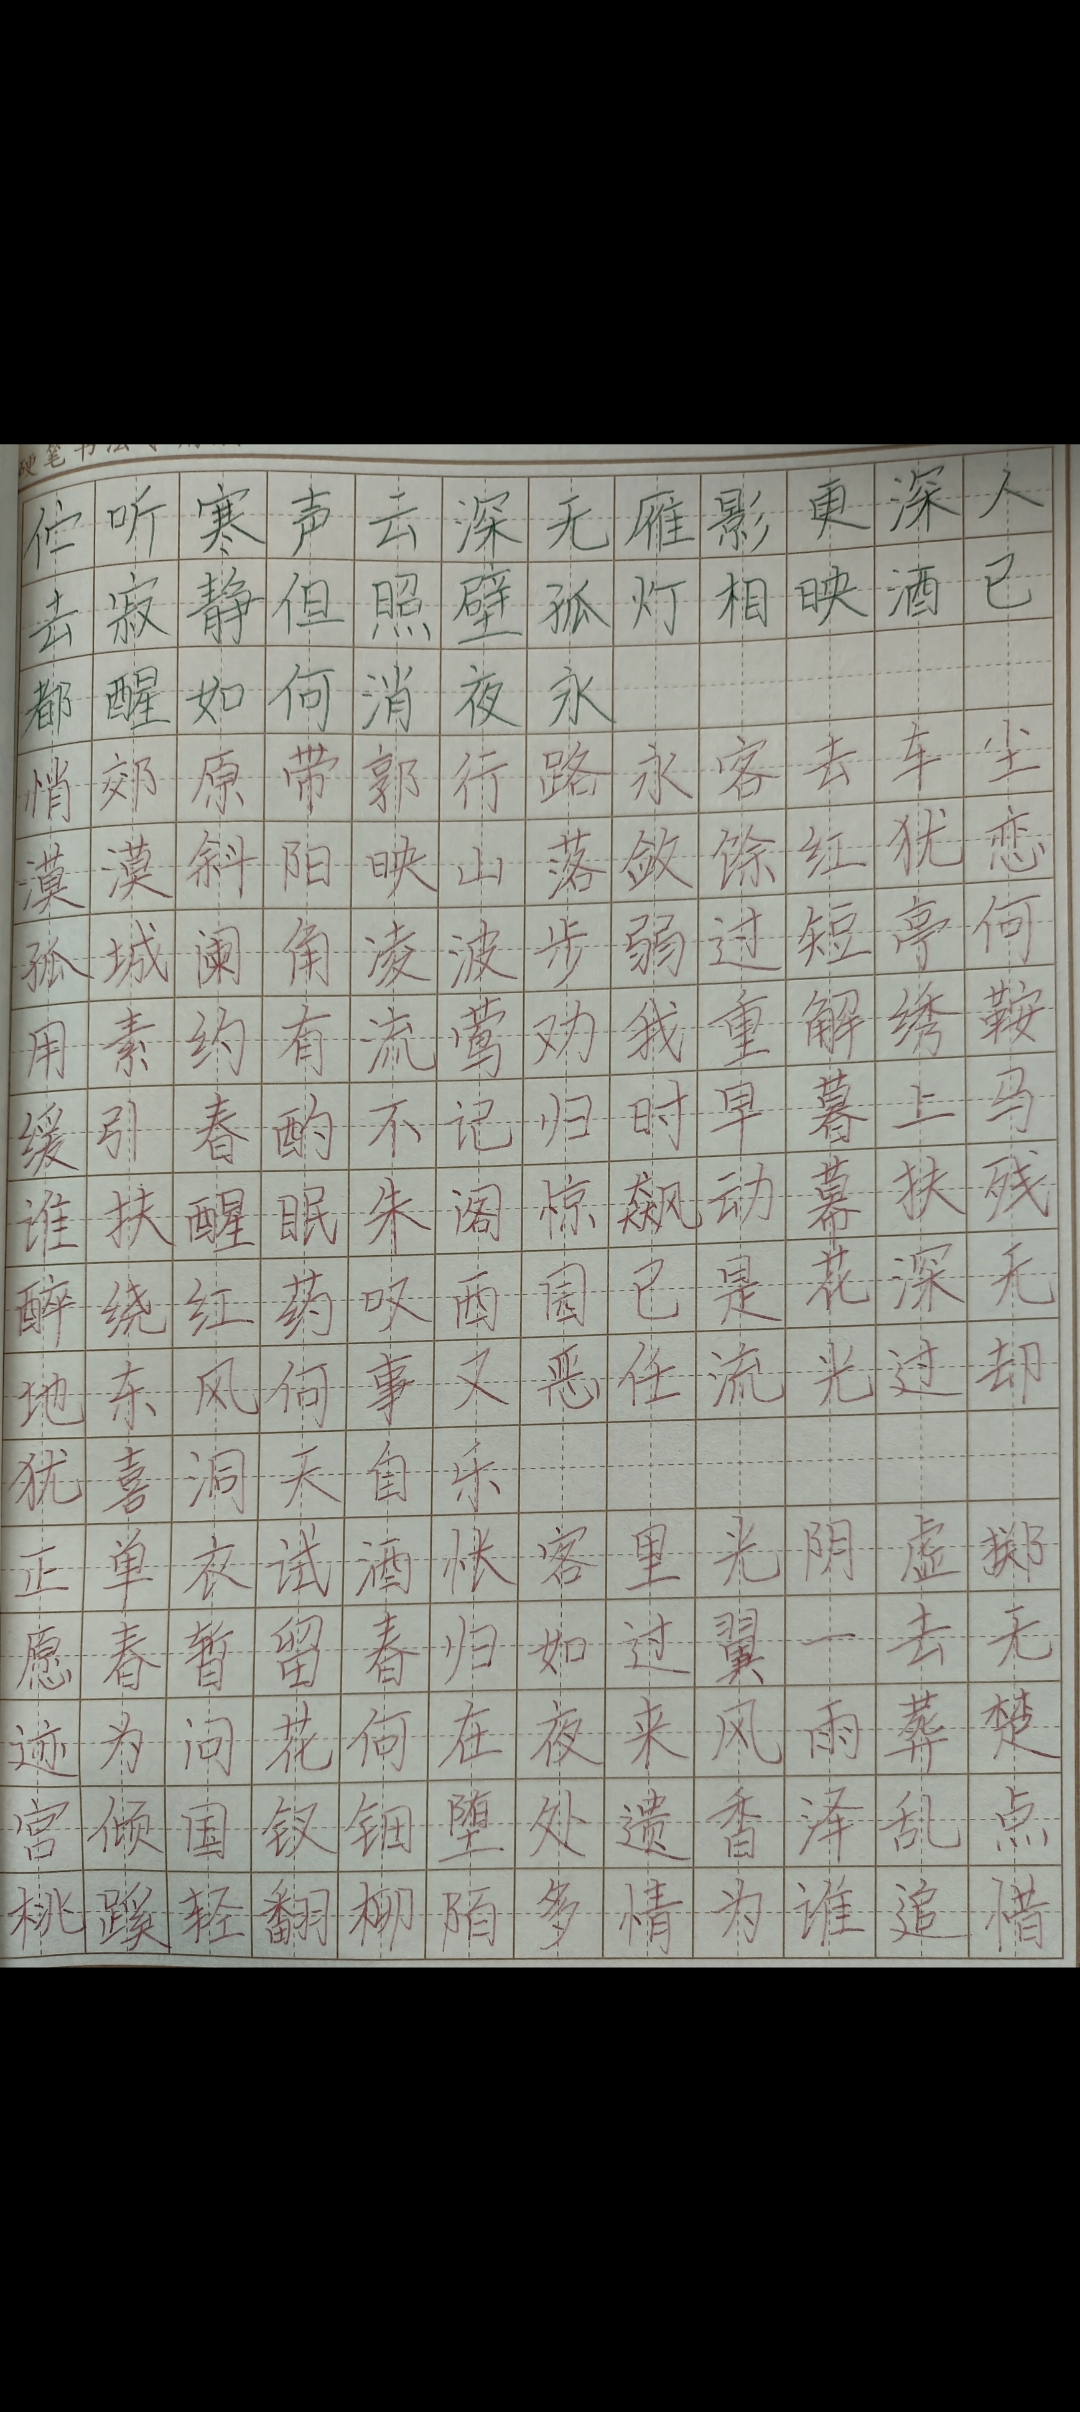 硬笔书法
伫听寒声云深无雁影更深人
去寂静但照壁孤灯相映酒已
都醒如何消夜永
悄郊原带郭行路永客去车尘
漠漠斜阳映山落敛馀红犹恋
孤城阑角凌波步弱过短亭何
用素约有流莺劝我重解绣鞍
缓引春酌不记归时早暮上马
谁扶醒眠朱阁惊飙动幕扶残
醉绕红药叹西园已是花深无
地东风何事又恶任流光过却
犹喜洞天自乐
正单衣试酒怅客里光阴虚掷
愿春暂留春归如过翼一去无
迹为问花何在夜来风雨葬楚
宫倾国钗钿堕处遗香泽乱点
桃蹊轻翻柳陌多情为谁追惜